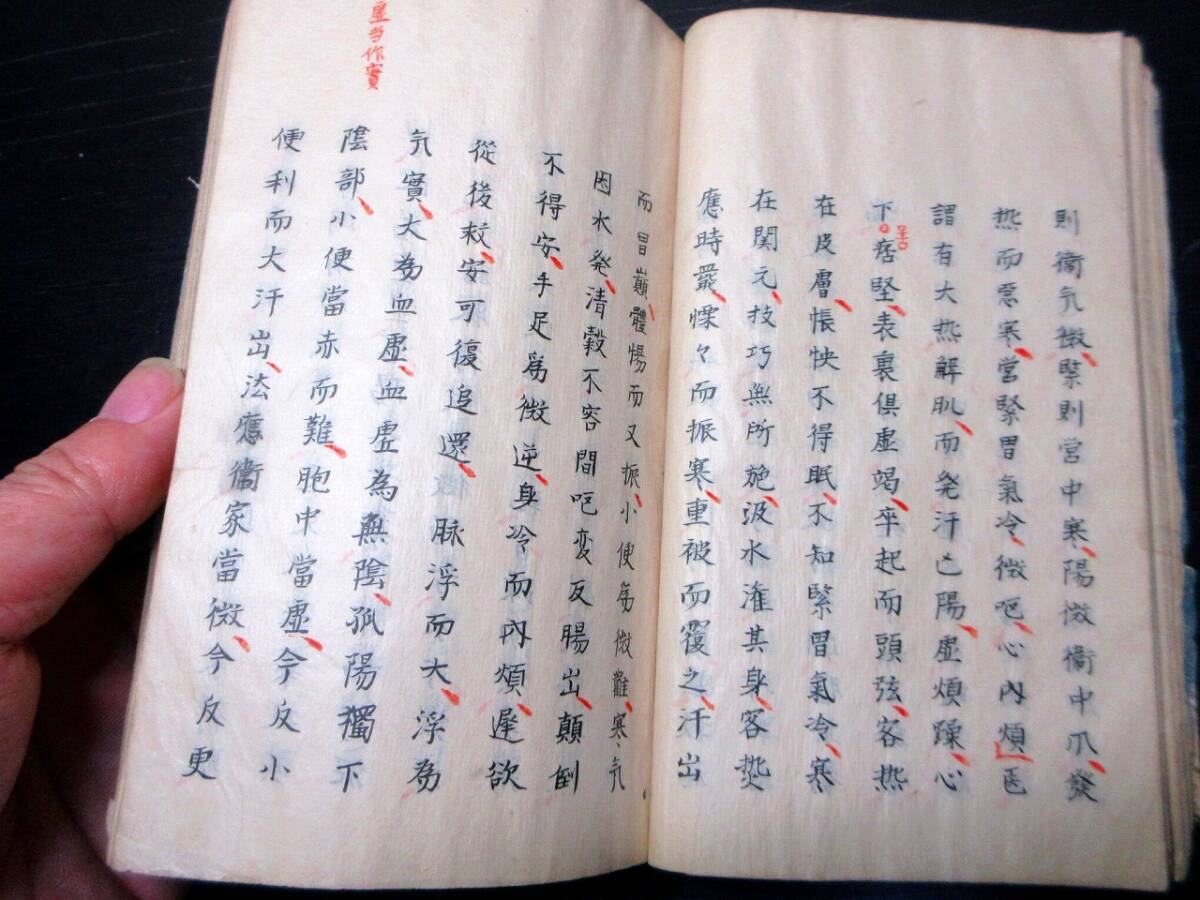 則衞气微緊則営中寒陽微衞中爪發
热而悪寒営緊胃氣冷微呕心内煩医
謂有大热解肌而発汗亡陽虚煩躁心
下苦痞堅表裏俱虚竭卒起而頭弦客热
在皮層悵怏不得眠不知緊胃氣冷寒
在関元技巧無所施汲水潅其身客热
應時罷慄々而振寒重被而覆之汗出
而冒巔體惕而又振小便為微難寒气
因水発清穀不容間呕変反腸出顛倒
不得安手足為微逆身冷而内煩遅欲
從後救安可復追還脉浮而大浮為
气實大為血虚血虚為無陰孤陽獨下
陰部小便當赤而難胞中當虚今反小
便利而大汗出法應衞家當微今反更
虚当作實